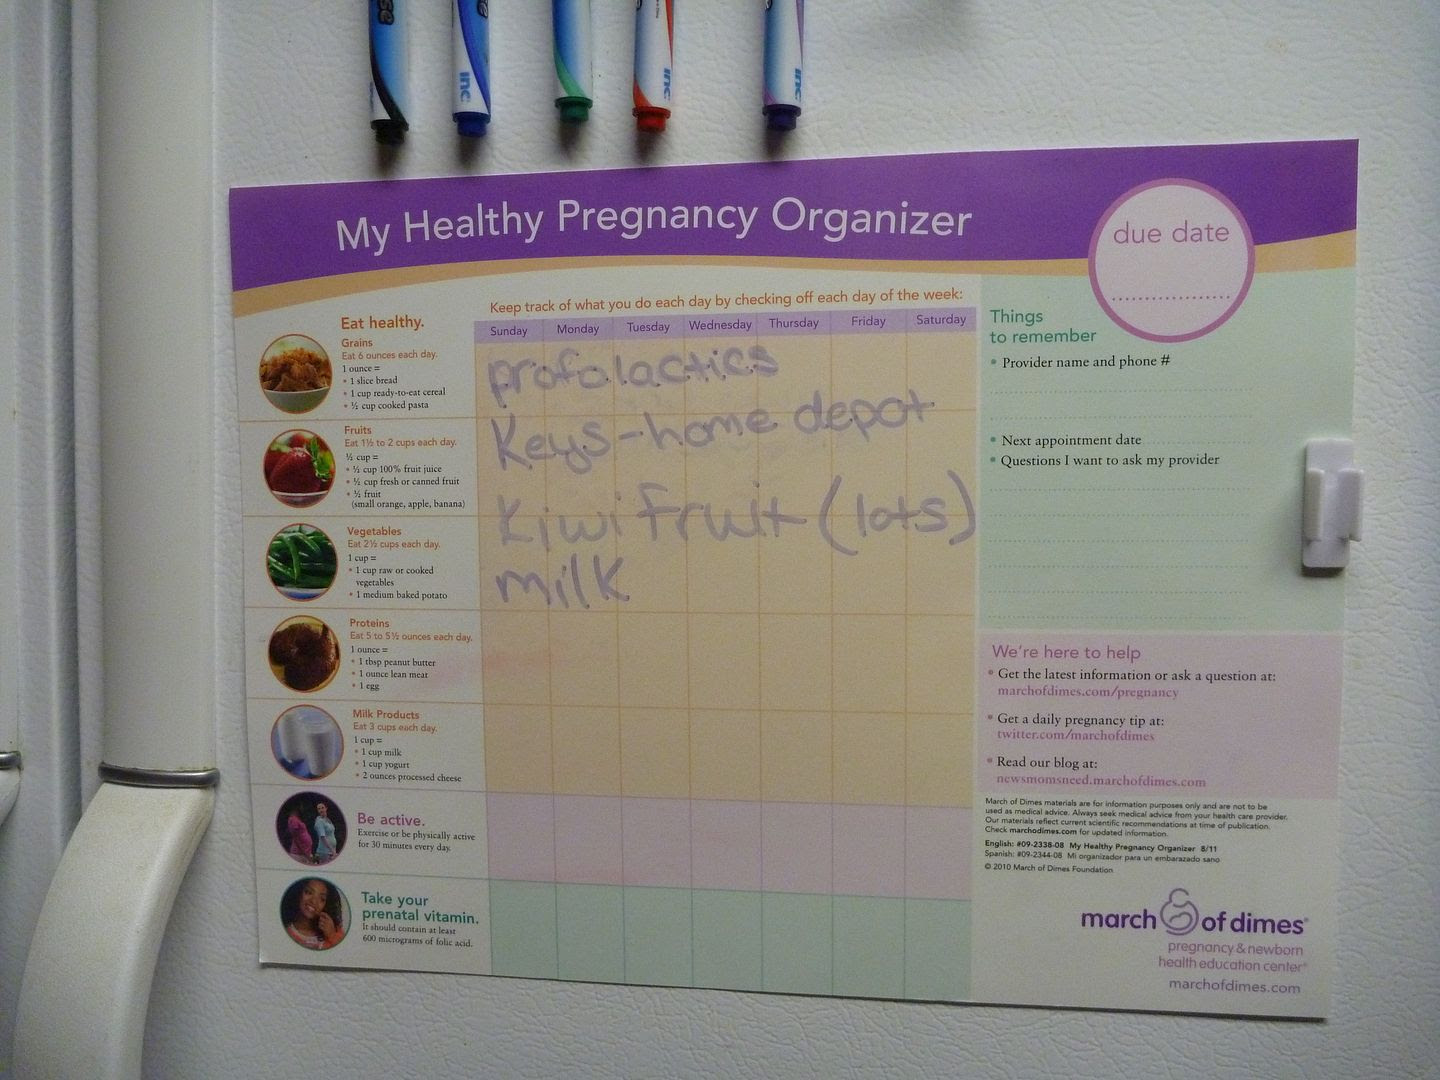 se
inc
re
inc
inc
My Healthy Pregnancy Organizer
due date
Keep track of what you do each day by checking off each day of the week:
Sunday Monday Tuesday Wednesday Thursday Friday Saturday
Eat healthy.
Grains
Eat 6 ounces each day.
1 ounce =
• 1 slice bread
• 1 cup ready-to-eat cereal
• ½ cup cooked pasta
Fruits
Eat 1½ to 2 cups each day.
½ cup =
• ½ cup 100% fruit juice
• ½ cup fresh or canned fruit
• ½ fruit
(small orange, apple, banana)
Vegetables
Eat 2½ cups each day.
1 cup =
• 1 cup raw or cooked
vegetables
• 1 medium baked potato
Proteins
Eat 5 to 5½ ounces each day.
1 ounce =
• 1 tbsp peanut butter
• 1 ounce lean meat
• 1 egg
Milk Products
Eat 3 cups each day.
1 cup =
• 1 cup milk
• 1 cup yogurt
• 2 ounces processed cheese
Be active.
Exercise or be physically active
for 30 minutes every day.
Take your
prenatal vitamin.
It should contain at least
600 micrograms of folic acid.
profolactics
Keys-home depot
Kiwi fruit (lots)
milk
Things
to remember
• Provider name and phone #
• Next appointment date
• Questions I want to ask my provider
We're here to help
• Get the latest information or ask a question at:
marchofdimes.com/pregnancy
• Get a daily pregnancy tip at:
twitter.com/marchofdimes
• Read our blog at:
newsmomsneed.marchofdimes.com
March of Dimes materials are for information purposes only and are not to be
used as medical advice. Always seek medical advice from your health care provider.
Our materials reflect current scientific recommendations at time of publication.
Check marchodimes.com for updated information.
English: #09-2338-08 My Healthy Pregnancy Organizer 8/11
Spanish: #09-2344-08 Mi organizador para un embarazado sano
© 2010 March of Dimes Foundation
march of dimes®
pregnancy & newborn
health education center®
marchofdimes.com